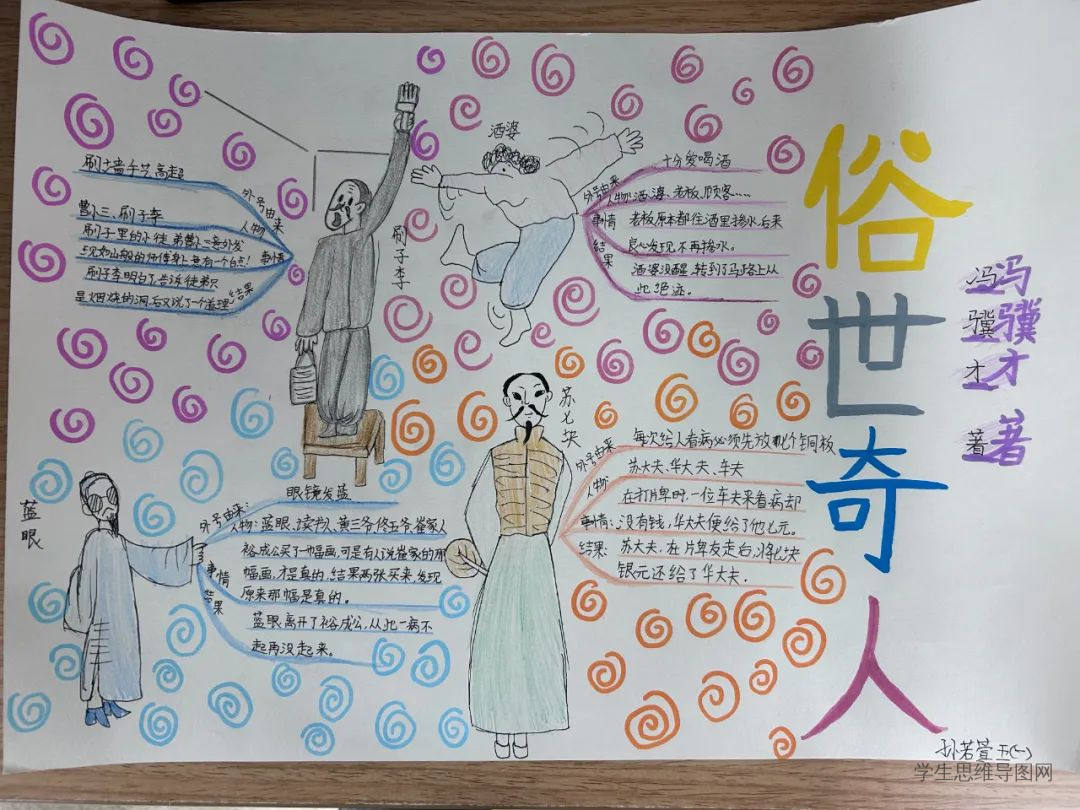 俗世奇人
冯骥才 著
冯骥才 著
刷子李
外号由来
刷墙手艺高超
人物
曹小三、刷子李
事情
刷子李的小徒弟曹小三意外发
现如山般的师傅身上竟有个白点!
结果
刷子李明白了,告诉徒弟只
是烟烧的洞,后又说了个道理
酒婆
外号由来
十分爱喝酒
人物:酒婆、老板、顾客……
事情
老板原本都往酒里掺水,后来
良心发现,不再掺水。
结果
酒婆没醒,转到了马路上从
此绝迹。
蓝眼
外号由来:
眼镜发蓝
人物:蓝眼、读书人、黄三爷、佟五爷、崔家人
事情
裕成公买了一幅画,可是有人说崔家的那
幅画,才是真的,结果两张买来,发现
原来那幅是真的。
结果
蓝眼离开了裕成公,从此一病不
起再没起来。
苏七块
外号由来
每次给人看病必须先放七个铜板
人物:
苏大夫、华大夫、车夫
事情:
在打牌时,一位车夫来看病却
没有钱,华大夫便给了他七元。
结果:
苏大夫,在牌友走后,将七块
银元还给了华大夫。
孙若萱 五(一)
学生思维导图网